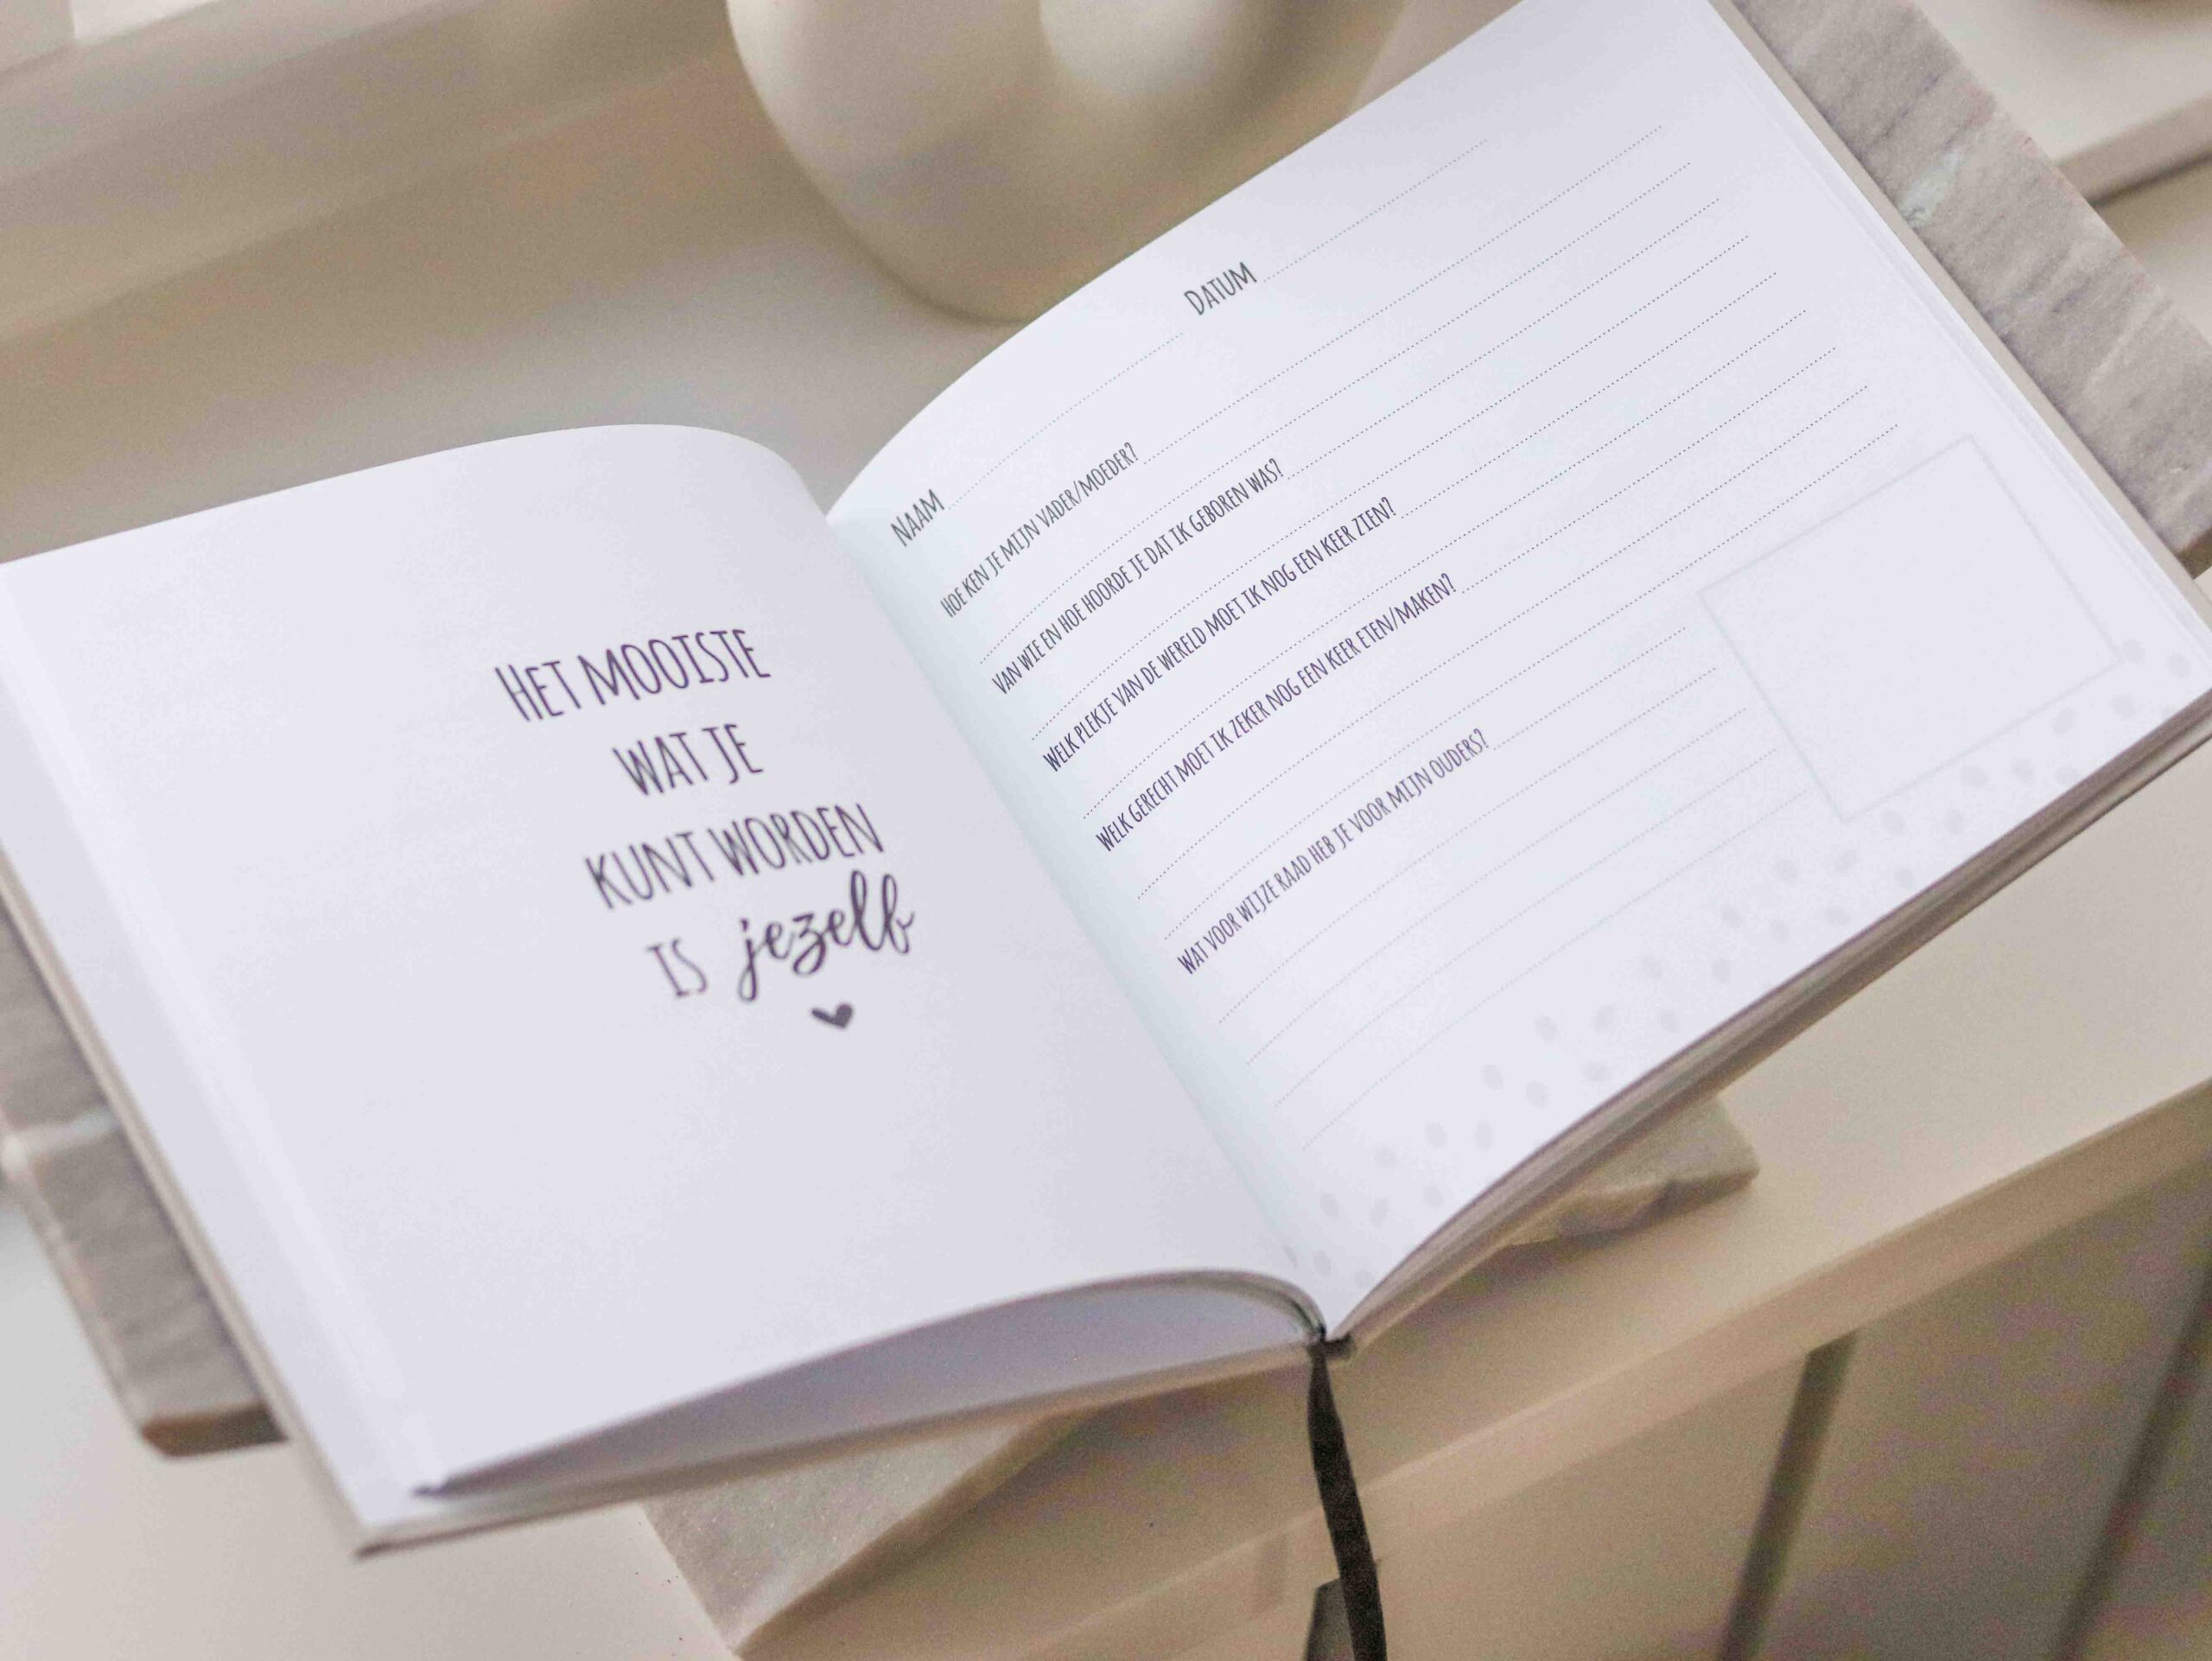 HET MOOISTE
WAT JE
KUNT WORDEN
IS jezelf
NAAM DATUM
HOE KEN JE MIJN VADER/MOEDER?
VAN WIE EN HOE HOORDE JE DAT IK GEBOREN WAS?
WELK PLEKJE VAN DE WERELD MOET IK NOG EEN KEER ZIEN?
WELK GERECHT MOET IK ZEKER NOG EEN KEER ETEN/MAKEN?
WAT VOOR WIJZE RAAD HEB JE VOOR MIJN OUDERS?